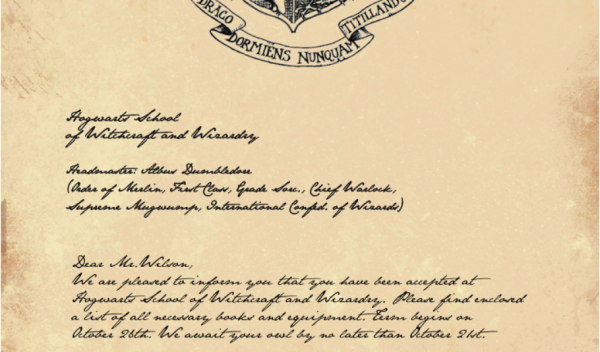 DRACO DORMIENS NUNQUAM TITILLANDUS
Hogwarts School
of Witchcraft and Wizardry
Headmaster: Albus Dumbledore
(Order of Merlin, First Class, Grade Sorc., Chief Warlock,
Supreme Mugwump, International Confed. of Wizards)
Dear Mr. Wilson,
We are pleased to inform you that you have been accepted at
Hogwarts School of Witchcraft and Wizardry. Please find enclosed
a list of all necessary books and equipment. Term begins on
October 26th. We await your owl by no later than October 21st.